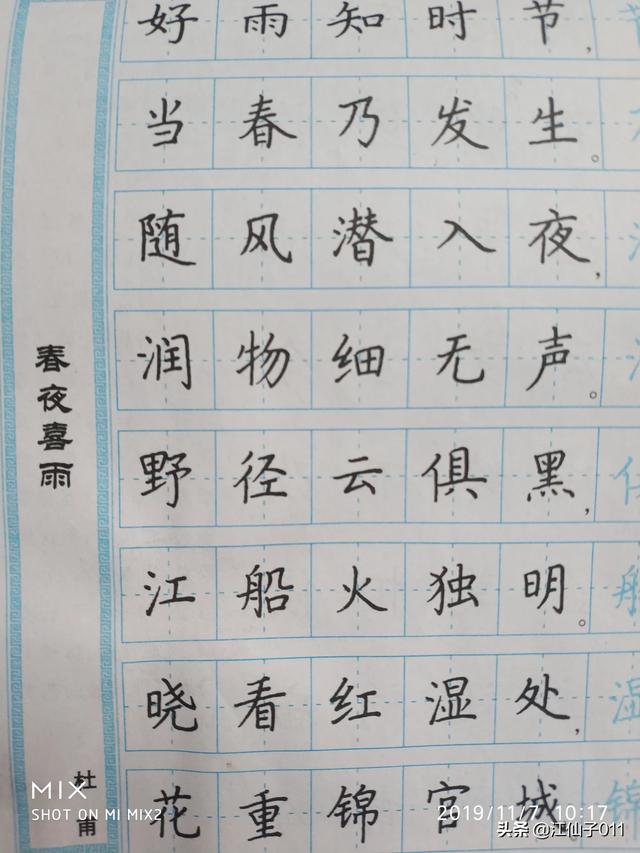 好雨知时节，
当春乃发生。
随风潜入夜，
润物细无声。
野径云俱黑，
江船火独明。
晓看红湿处，
花重锦官城。
春夜喜雨
杜甫
MIX
SHOT ON MI MIX2
2019/11/7 10:17
头条 @江仙子011